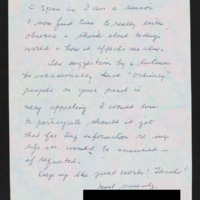 I am a senior
& now find time to really listen,
observe & think about todays
world & how it affects me also.
The suggestion by a listener
to occasionally have "ordinary"
people on your panel is
very appealing. I would love
to participate, should it get
that far. Any information re my
life etc. would be answered
if requested.
Keep up the great work! Thanks!
Most sincerely,